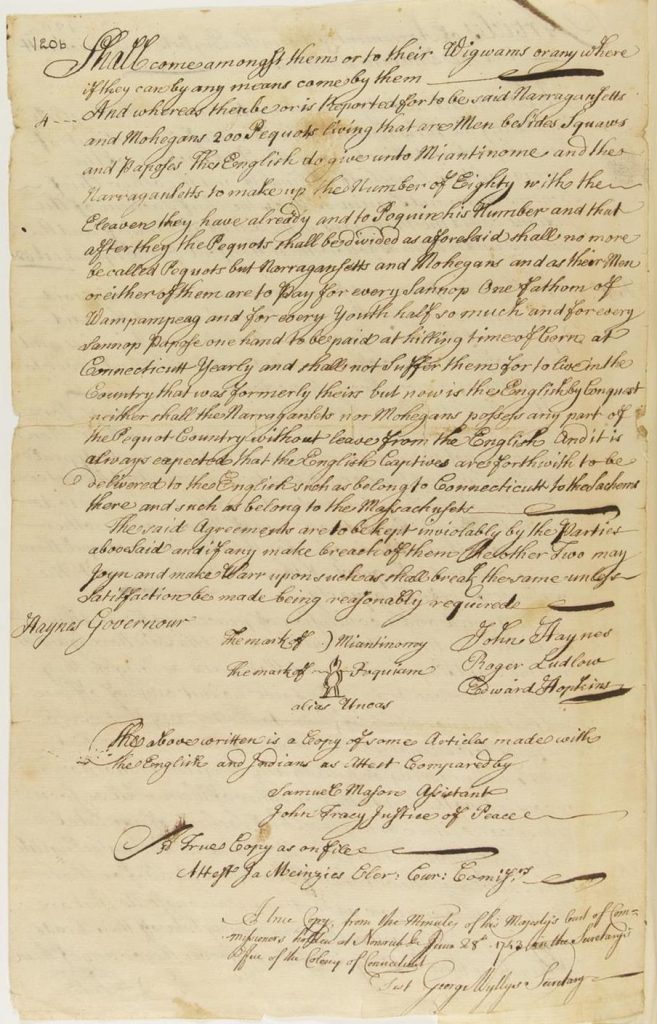 V20b
Shall come amongst them or to their Wigwams or any where
if they can by any means come by them
4 And whereas there be or is Reported for to be said Narragansetts
and Mohegans 200 Pequots living that are Men besides Squaws
and Paposes The English do give unto Miantinome and the
Narragansetts to make up the Number of Eighty with the
Eleaven they have already and to Poquim his Number and that
after they the Pequots shall be divided as aforesaid shall no more
be called Pequots but Narragansetts and Mohegans and as their Men
or either of them are to Pay for every Sannop One fathom of
Wampampeag and for every Youth half so much and for every
Sannop Papose one hand to be paid at killing time of Corn at
Connecticutt Yearly and shall not Suffer them for to live in the
Country that was formerly theirs but now is the English by Conquest
neither shall the Narragansets nor Mohegans possess any part of
the Pequot Country without leave from the English And it is
always expected that the English Captives are forthwith to be
delivered to the English such as belong to Connecticutt to the Sachems
there and such as belong to the Massachusets
The said Agreements are to be kept inviolably by the Parties
abovesaid and if any make breach of them the other Two may
Joyn and make Warr upon such as shall break the same unless
Satisfaction be made being reasonably required
Haynes Governour
The mark of ) Miantinomy
John Haynes
Roger Ludlow
The mark of Poquiam
Edward Hopkins
alias Uncas
The above written is a Copy of some Articles made with
the English and Indians as Attest Compared by
Samuel Mason Assistant
John Tracy Justice of Peace
A True Copy as on file
Attest Ja Meinzies Cler: Cur: Comiss:rs
A true Copy, from the Minutes of his Majesty's Court of Com-
missioners holden at Norwich June 28th 1743 in the Secretary's
Office of the Colony of Connecticut
Test George Wyllys Secretary